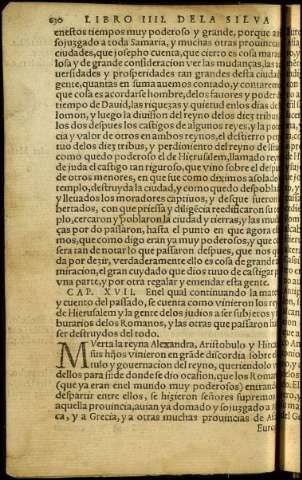 630 LIBRO IIII. DE LA SILVA
enestos tiempos muy poderoso y grande, porque au
sojuzgado a toda Samaria, y muchas otras prouincias
ciudades, que josepho cuenta, que cierto es cosa mara
losa y de grande consideracion ver las mudanças, las ad
uersidades y prosperidades tan grandes desta ciudad
gente, quantas en suma auemos contado, y contaremos
que cosa es acordarse hombre, delos fauores y poder
tiempo de Dauid, las riquezas y quietud enlos dias de
lomon, y luego la diuision del reyno delos diez tribus
los dos despues los castigos de algunos reyes, y la po
cia y valor de otros en ambos reynos, el destierro por
tuo delos diez tribus, y perdimiento del reyno de Isra
como quedo poderoso el de Hierusalem, llamado reyno
de juda el castigo tan riguroso, que vino sobre el despues
de otros menores, en que fue como diximos asolado
templo, destruyda la ciudad, y como quedo despoblado
y lleuados los moradores captiuos, y desque fueron
bertados, con que priessa y diligẽcia reedificaron su
plo, cercaron y poblaron la ciudad y tierras, y las mudan
ças por do passaron, hasta el punto en que agora
mos, que como digo eran ya muy poderosos, y que
sera tan de notar lo que passaron despues, que nos
da por dezir, verdaderamente ello es cosa de grande
miracion, el gran cuydado que dios tuuo de castigar
vna parte, y por otra regalar y emendar esta gente.
CAP. XVII. Enel qual continuando la materia
y cuento del passado, se cuenta como vinieron los reyes
de Hierusalem y la gente delos judios a ser subjetos y
butarios delos Romanos, y las otras que passaron hasta
ser destruydos del todo.
MVerta la reyna Alexandra, Aristobulo y Hirca
sus hijos vinieron en grãde discordia sobre el
tulo y gouernacion del reyno, queriendolo
dellos para si: de donde se dio ocasion, que los Roma
(que ya eran enel mundo muy poderosos) entrando
despartir entre ellos, se higieron señores supremos
aquella prouincia, auian ya domado y sojuzgado a
ca, y a Grecia, y a otras muchas prouincias de Asia
Euro